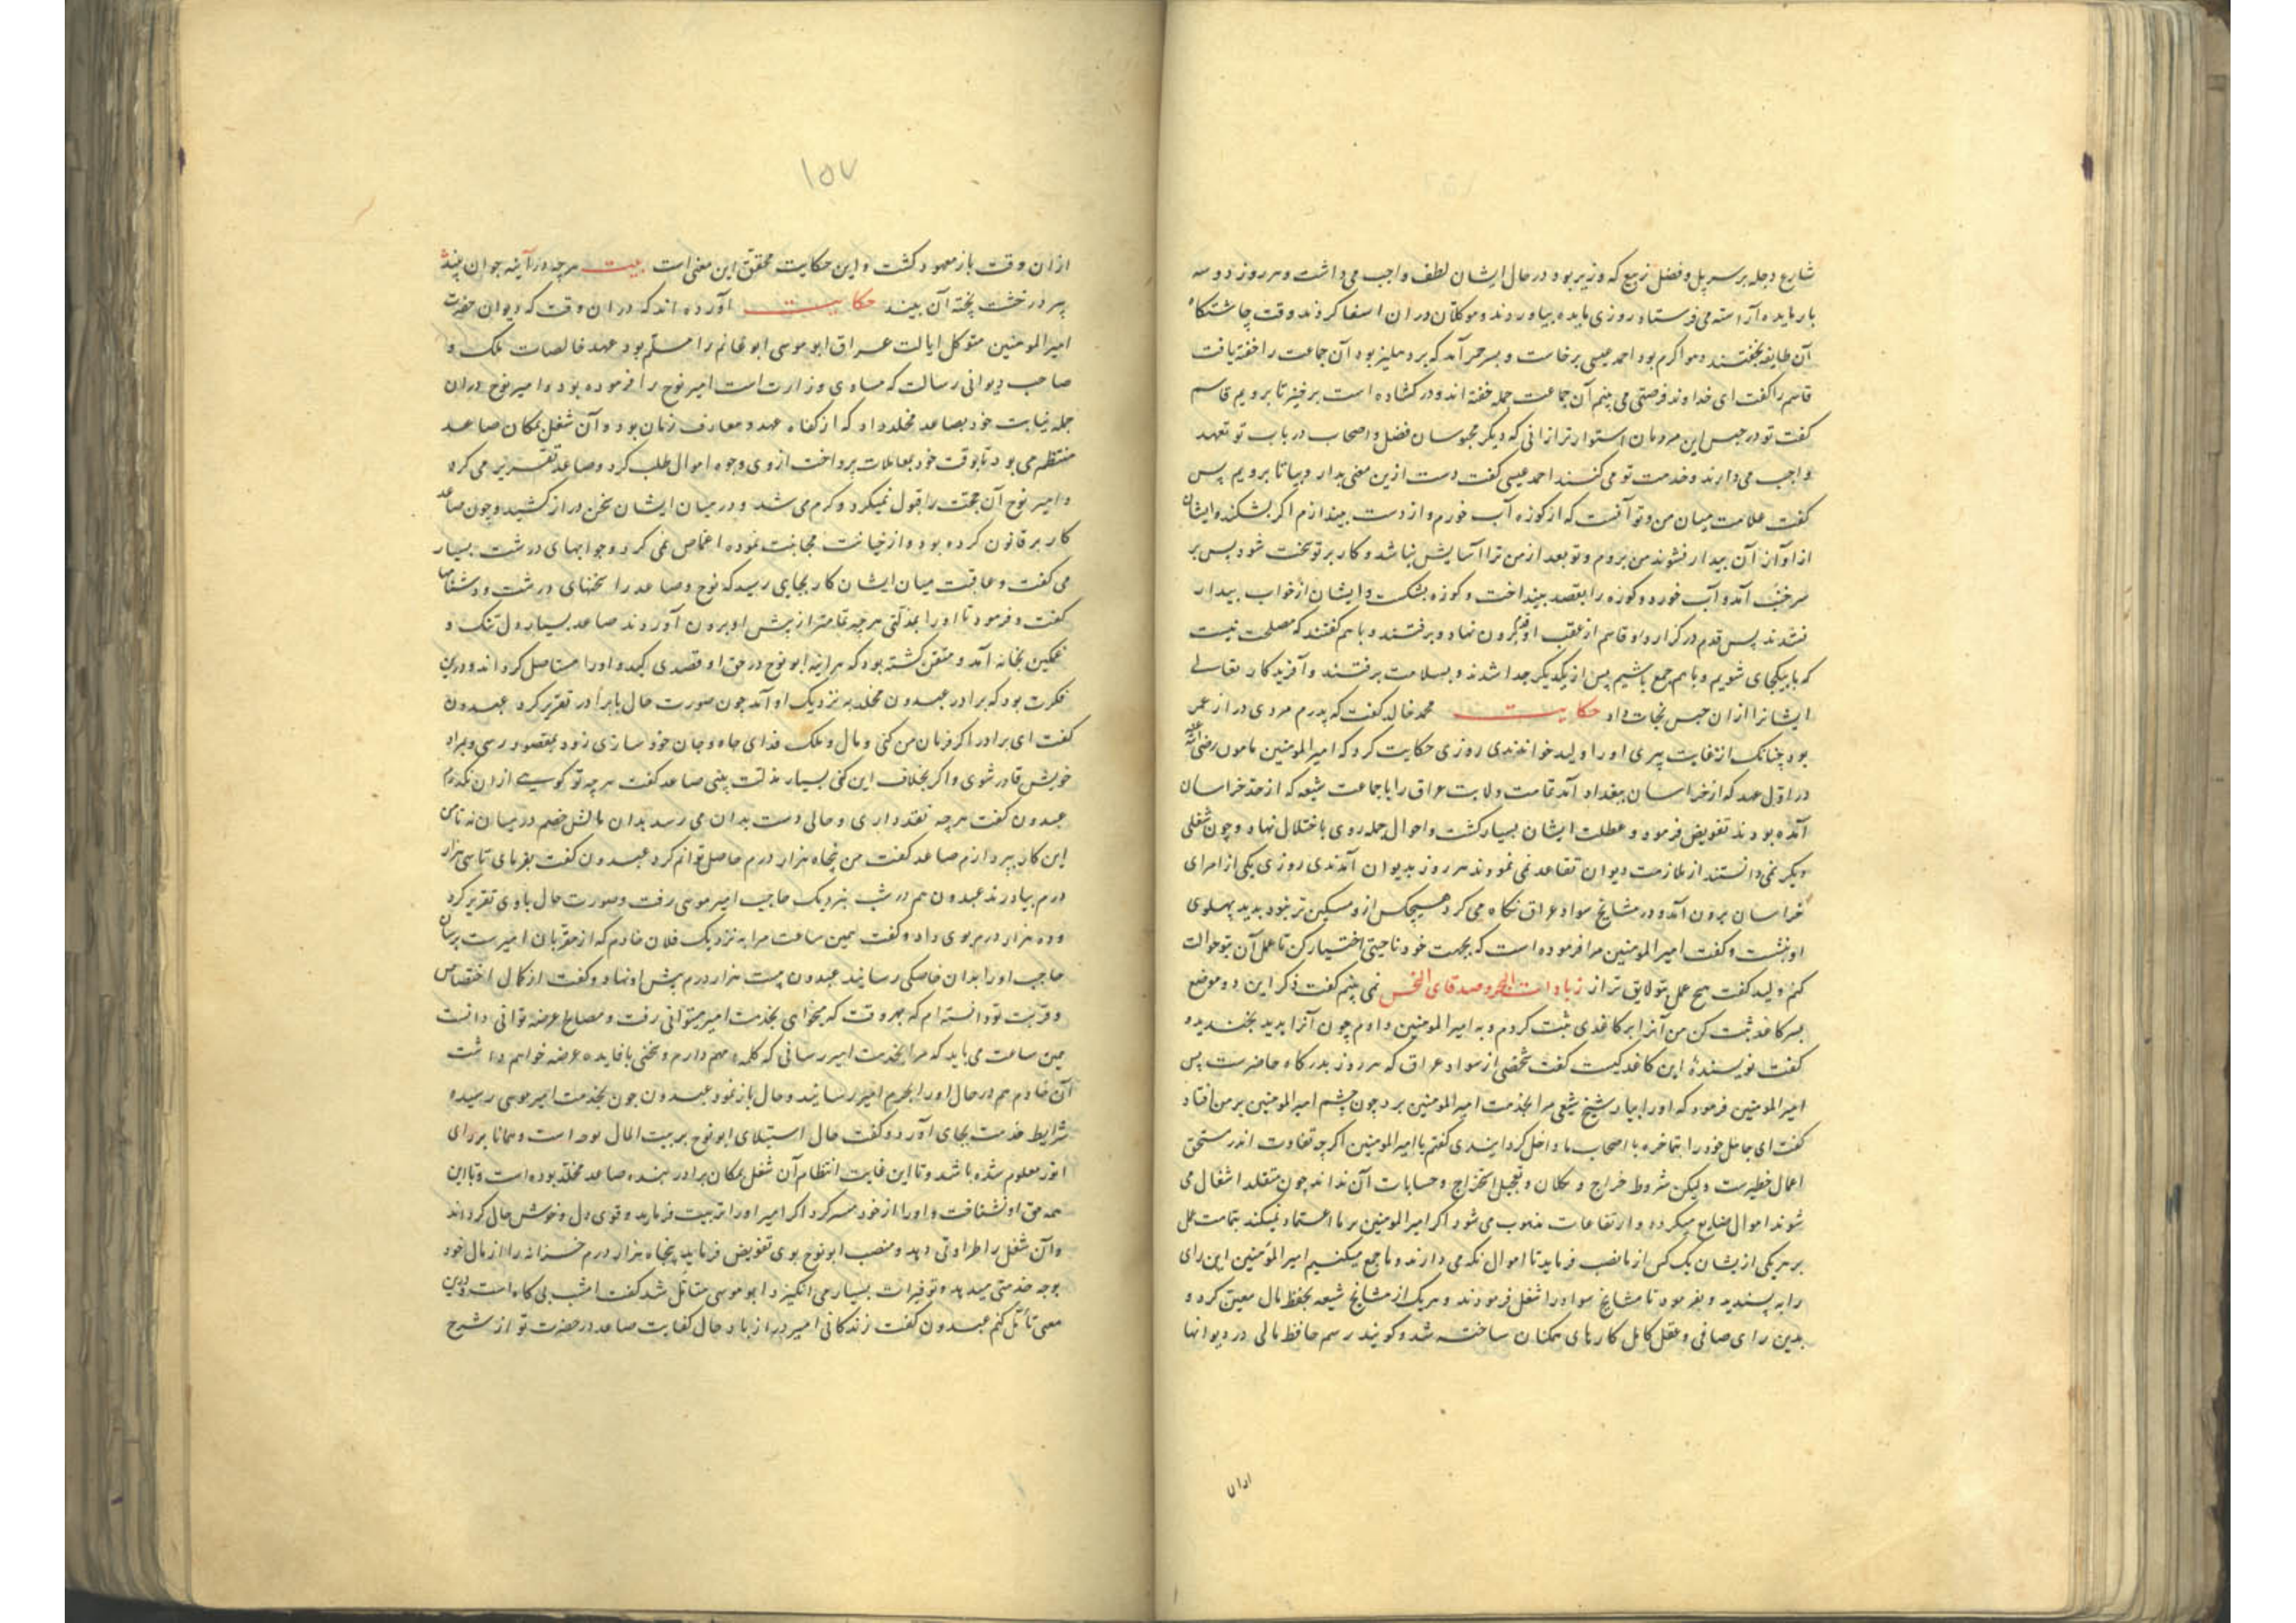 شارع دجله بر سر پل و فضل ربیع که وزیر بود در حال ایشان لطف واجب می داشت و هر روز دو سه
بار مایده آراسته می فرستاد روزی مایده بیاوردند و موکلان در ان استفا کردند وقت چاشتگاه
آن طایفه بخفتند و هوا گرم بود احمد عیسی برخاست و بسر حجر آمد که بر دهلیز بود آن جماعت را خفته یافت
قاسم را گفت ای خداوند فرصتی می بینم آن جماعت جمله خفته اند و در کشاده است برخیز تا برویم قاسم
گفت تو در حبس این مردمان استوارتر ازانی که دیگر محبوسان فضل و اصحاب در باب تو تعهد
واجب می دارند و خدمت تو می کنند احمد عیسی گفت دست ازین معنی بدار و بیا تا برویم پس
گفت علامت میان من و تو آنست که از کوزه آب خورم و از دست بیندازم اگر بشکند و ایشان
از آواز آن بیدار نشوند من بروم و تو بعد از من ترا آسایش نباشد و کار بر تو سخت شود پس بر
سر خنب آمد و آب خورد و کوزه را بقصد بینداخت و کوزه بشکست و ایشان از خواب بیدار
نشدند پس قدم در گزارد و قاسم از عقب او قدم برون نهاد و برفتند و باهم گفتند که مصلحت نیست
که ما بیکجای شویم و باهم جمع باشیم پس از یکدیگر جدا شدند و بسلامت برفتند و آفریدگار تعالی
ایشانرا ازان حبس نجات داد حکایت محمد خالد گفت که پدرم مردی دراز عمر
بود چنانک از غایت پیری او را ولید خواندندی روزی حکایت کرد که امیر المومنین مامون رضی الله عنه
در اول عهد که از خراسان ببغداد آمد تمامت ولایت عراق را با جماعت شیعه که از حد خراسان
آمده بودند تفویض فرمود و عطلت ایشان بسیار گشت و احوال جمله روی باختلال نهاد و چون شغلی
دیگر نمی دانستند از ملازمت دیوان تقاعد نمی نمودند هر روز بدیوان آمدندی روزی یکی از امرای
خراسان برون آمد و در مشایخ سواد عراق نگاه می کرد هیچکس از و مسکین تر نبود بدید پهلوی
او بنشست و گفت امیر المومنین مرا فرموده است که بجهت خود ناحیتی اختیار کن تا عمل آن بتو حوالت
کنم ولید گفت هیچ عمل بتو لایق تر از زیادات البحر و صدقای النحس نمی بینم گفت ذکر این دو موضع
بسر کاغذ ثبت کن من آنرا بر کاغذی ثبت کردم و به امیر المومنین دادم چون آنرا بدید بخندید و
گفت نویسندهٔ این کاغذ کیست گفت شخصی از سواد عراق که هر روز بدرگاه حاضرست پس
امیر المومنین فرمود که او را بیار شیخ شیعی مرا بخدمت امیر المومنین برد چون چشم امیر المومنین بر من افتاد
گفت ای جاهل خود را بتماخره با اصحاب ما داخل گردانیدی گفتم یا امیر المومنین اگرچه تفاوت اندر مستحق
اعمال خطیرست و لیکن شروط خراج و تعجیل استخراج و حسابات آن ندانند چون متقلد اشغال می
شوند اموال ضایع میگردد و ارتفاعات منهوب می شود اگر امیر المومنین بر ما اعتماد نمیکند بتمامت عمل
بر هر یکی ازیشان یک کس از ما نصب فرماید تا اموال نگه می دارند و ما جمع میکنیم امیر المومنین این رای
را به پسندید و بفرمود تا مشایخ سواد را شغل فرمودند و هر یک از مشایخ شیعه بحفظ مال معین کرد و
بدین رای صافی و عقل کامل کارهای همکنان ساخته شد و گویند رسم حافظ مالی در دیوانها
ازان
۱۵۷
ازان وقت باز معهود گشت و این حکایت محقق این معنی است بیت هر چه در آینه جوان بیند
پیر در خشت پخته آن بیند حکایت آورده اند که در ان وقت که دیوان حضرت
امیر المومنین متوکل ایالت عراق ابو موسی ابو غانم را مسلم بود عهد خالصات ملک و
صاحب دیوانی رسالت که مساوی وزارت است امیر نوح را فرموده بود و امیر نوح دران
جمله نیابت خود بصاعد مخلد داد که از کفاه عهد و معارف زمان بود و آن شغل بمکان صاعد
منتظم می بود تا بوقت خود بمعاملات پرداخت از وی وجوه اموال طلب کرد و صاعد تقریر می کرد
و امیر نوح آن حجت را قبول نمیکرد و گرم می شد و در میان ایشان سخن دراز کشید و چون صاعد
کار بر قانون کرده بود و از خیانت مجانبت نموده اغماض نمی کرد و جوابهای درشت بسیار
می گفت و عاقبت میان ایشان کار بجایی رسید که نوح صاعد را سخنهای درشت و دشنامها
گفت و فرمود تا او را بمذلتی هر چه تمامتر از پیش او برون آوردند صاعد بسیار دل تنگ و
غمگین بخانه آمد و متیقن گشته بود که هر اینه ابو نوح در حق او قصدی کند و او را مستاصل گرداند و درین
فکرت بود که برادر عبدون مخلد به نزدیک او آمد چون صورت حال با برادر تقریر کرد عبدون
گفت ای برادر اگر فرمان من کنی و مال و ملک فدای جاه و جان خود سازی زود بمقصود رسی و بمراد
خویش قادر شوی و اگر بخلاف این کنی بسیار مذلت بینی صاعد گفت هر چه تو گویی ازان نگذرم
عبدون گفت هر چه نقد داری و حالی دست بدان می رسد بدان مالش خصم در میان نه تا من
این کار بپردازم صاعد گفت من پنجاه هزار درم حاصل توانم کرد عبدون گفت بفرمای تا سی هزار
درم بیاورند عبدون هم در شب بنزدیک حاجب امیر موسی رفت و صورت حال باوی تقریر کرد
و ده هزار درم بوی داد و گفت همین ساعت مرا به نزدیک فلان خادم که از مقربان امیرست برسان
حاجب او را بدان خاصکی رسانید عبدون بیست هزار درم پیش او نهاد و گفت از کمال اختصاص
و قربت تو دانسته ام که بهر وقت که بخواهی بخدمت امیر میتوانی رفت و مصالح عرضه توانی داشت
همین ساعت می باید که مرا بخدمت امیر رسانی که کلمهٔ مهم دارم و سخنی با فایده عرضه خواهم داشت
آن خادم هم در حال او را بحرم امیر رسانید و حال باز نمود عبدون چون بخدمت امیر موسی رسید
شرایط خدمت بجای آورد و گفت حال استیلای ابو نوح بر بیت المال بوده است و همانا بر رای
انور معلوم شده باشد و تا این غایت انتظام آن شغل بمکان برادر بنده صاعد مخلد بوده است و با این
همه حق او نشناخت و او را از خود متنفر کرد اگر امیر او را تربیت فرماید و قوی دل و خوش حال گرداند
و آن شغل را طراوتی دهد و منصب ابو نوح بوی تفویض فرماید پنجاه هزار درم خزانه را از مال خود
بوجه خدمتی میدهد و توفیرات بسیار می انگیزد ابو موسی متامل شد گفت امشب بی گاه است درین
معنی تامل کنم عبدون گفت زندگانی امیر دراز باد حال کفایت صاعد در حضرت تو از شرح